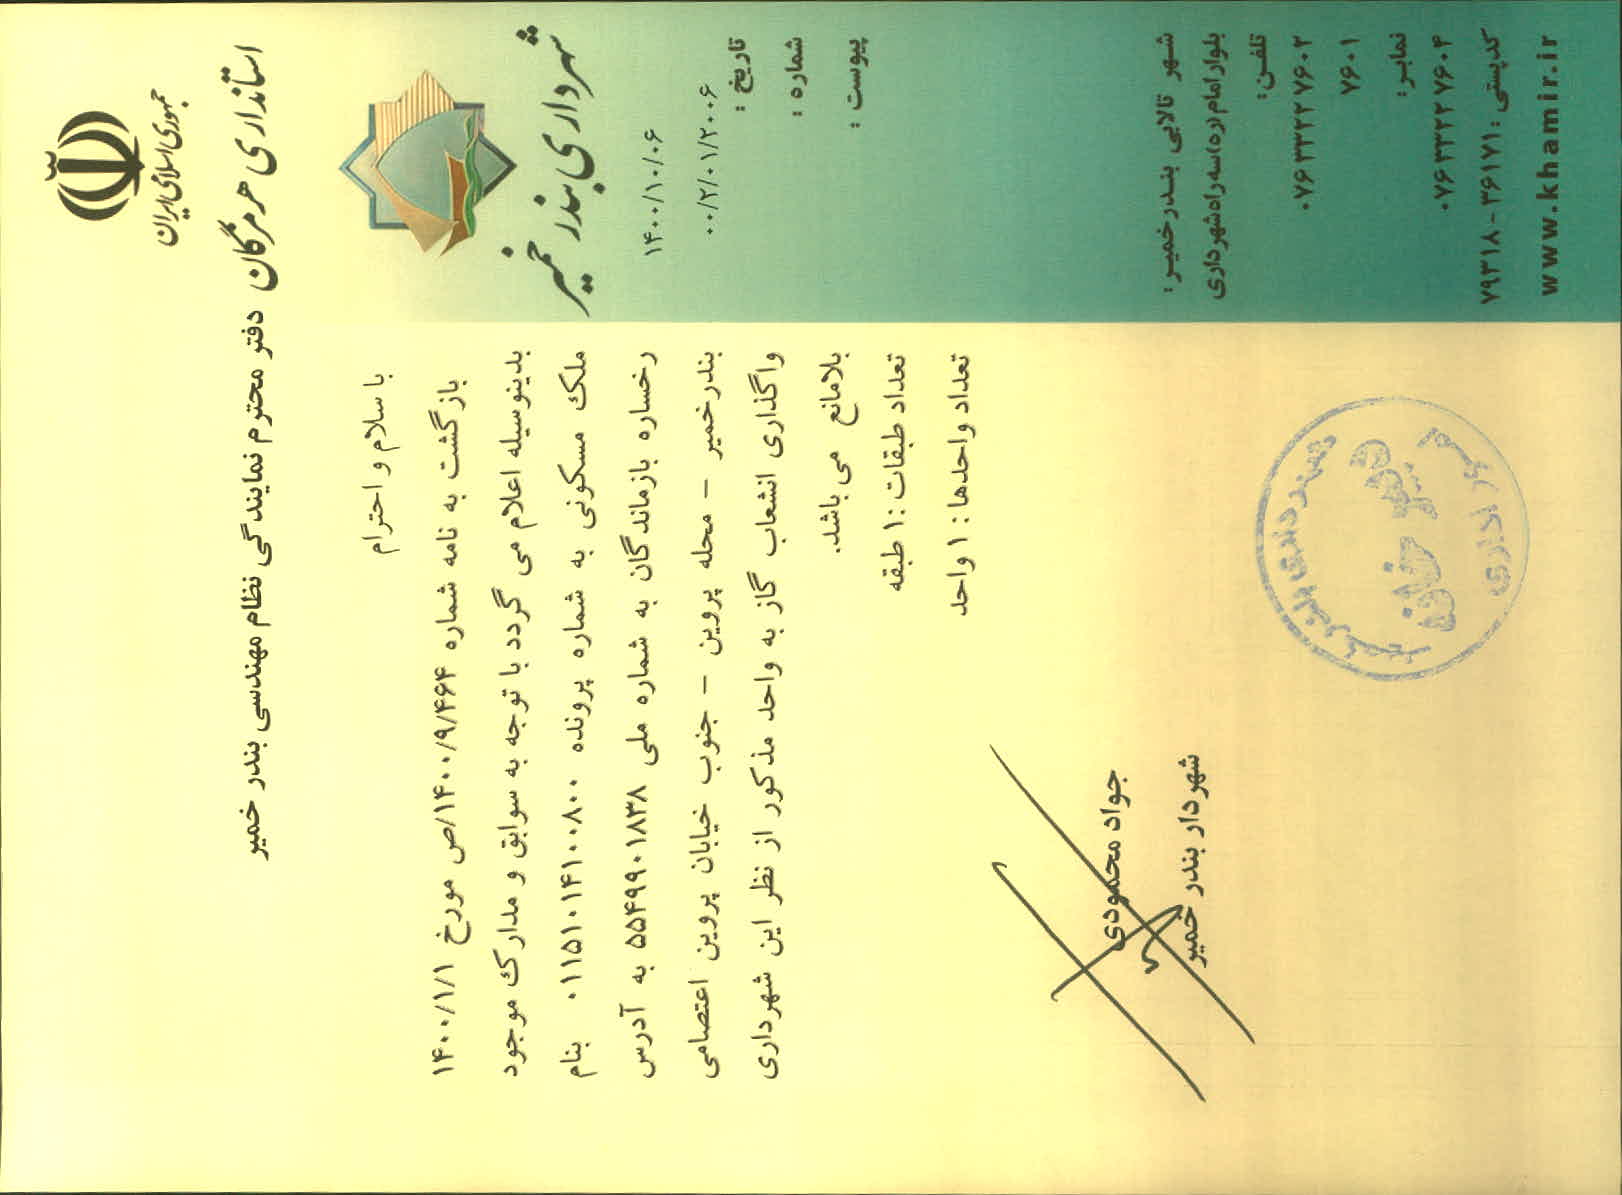 جمهوری اسلامی ایران
استانداری هرمزگان
شهرداری بندر خمیر
۱۴۰۰/۱۰/۰۶
۰۰/۲/۰۱/۲۰۰۶
تاریخ :
شماره :
پیوست :
دفتر محترم نمایندگی نظام مهندسی بندر خمیر
با سلام و احترام
بازگشت به نامه شماره ۱۴۰۰/۹/۴۶۴/ص مورخ ۱۴۰۰/۱/۱
بدینوسیله اعلام می گردد با توجه به سوابق و مدارک موجود
ملک مسکونی به شماره پرونده ۰۱۱۵۱۰۱۴۱۰۰۸۰۰ بنام
رخساره بازماندگان به شماره ملی ۵۵۴۹۹۰۱۸۳۸ به آدرس
بندرخمیر - محله پروین - جنوب خیابان پروین اعتصامی
واگذاری انشعاب گاز به واحد مذکور از نظر این شهرداری
بلامانع می باشد.
تعداد طبقات :۱ طبقه
تعداد واحدها : ۱ واحد
جواد محمودی
شهردار بندر خمیر
شهرداری بندر خمیر
امور اداری
شهر تالابی بندرخمیر:
بلوار امام(ره)سه راه شهرداری
تلفن:
۰۷۶۳۳۲۲۷۶۰۲
۷۶۰۱
نمابر:
۰۷۶۳۳۲۲۷۶۰۴
کدپستی : ۳۶۱۷۱-۷۹۳۱۸
www.khamir.ir